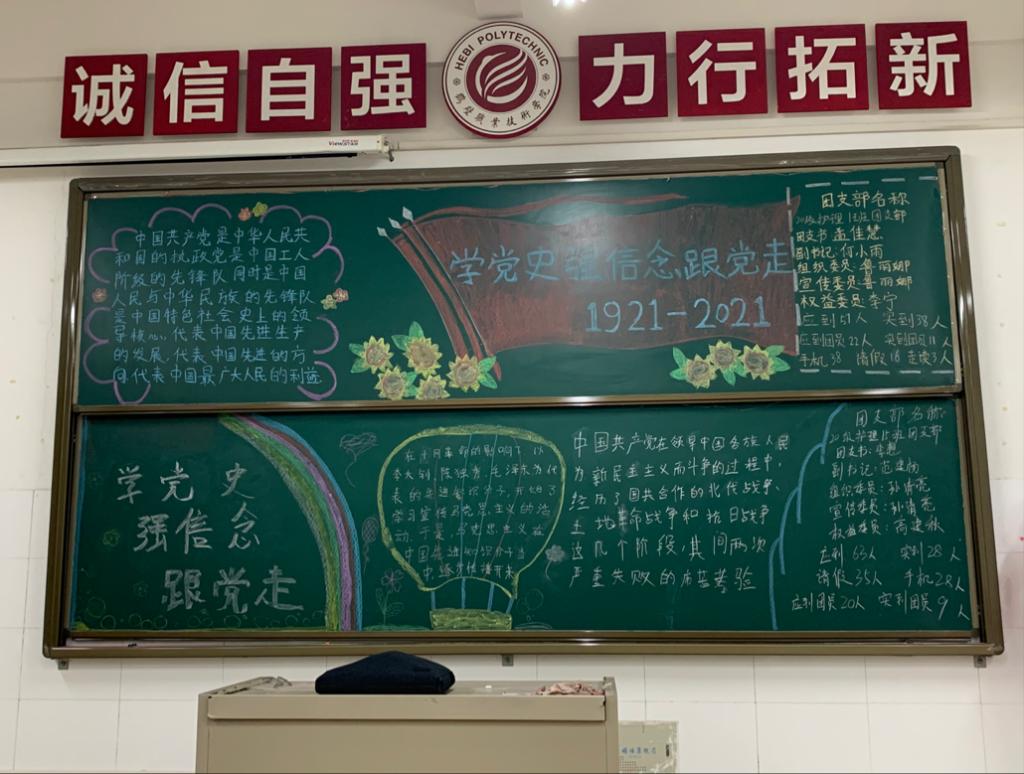 诚信自强
HEBI POLYTECHNIC
鹤壁职业技術学院
力行拓新
ViewSTAR
中国共产党是中华人民共
和国的执政党是中国工人
阶级的先锋队同时是中国
人民与中华民族的先锋队
是中国特色社会史上的领
导核心,代表中国先进生产
的发展,代表中国先进的方
向代表中国最广大人民的利益
学党史强信念跟党走
1921-2021
团支部名称
20级护理 班团支部
团支书:孟佳慧
副书记:何小雨
组织委员:鲁丽娜
宣传委员:鲁丽娜
权益委员:李宁
应到51人 实到38人
应到团员22人 实到团员11人
手机38 请假18 走读3人
学党史
强信念
跟党走
李大钊,陈独秀,毛泽东为代
表的先进知识分子,开始了
学习宣传马克思主义的活
动,于是,马克思主义在
中国先进知识分子当
中国共产党在领早中国各族人民
为新民主主义而斗争的过程中,
经历了国共合作的北伐战争、
土地革命战争和抗日战争
这几个阶段,其间两次
严重失败的 考验
团支部名称
20级护理15班团支部
团支书:
副书记:
组织委员:孙清亮
宣传委员:孙清亮
权益委员:
应到 63人 实到 28人
请假 35人 手机28人
应到团员20人 实到团员9人